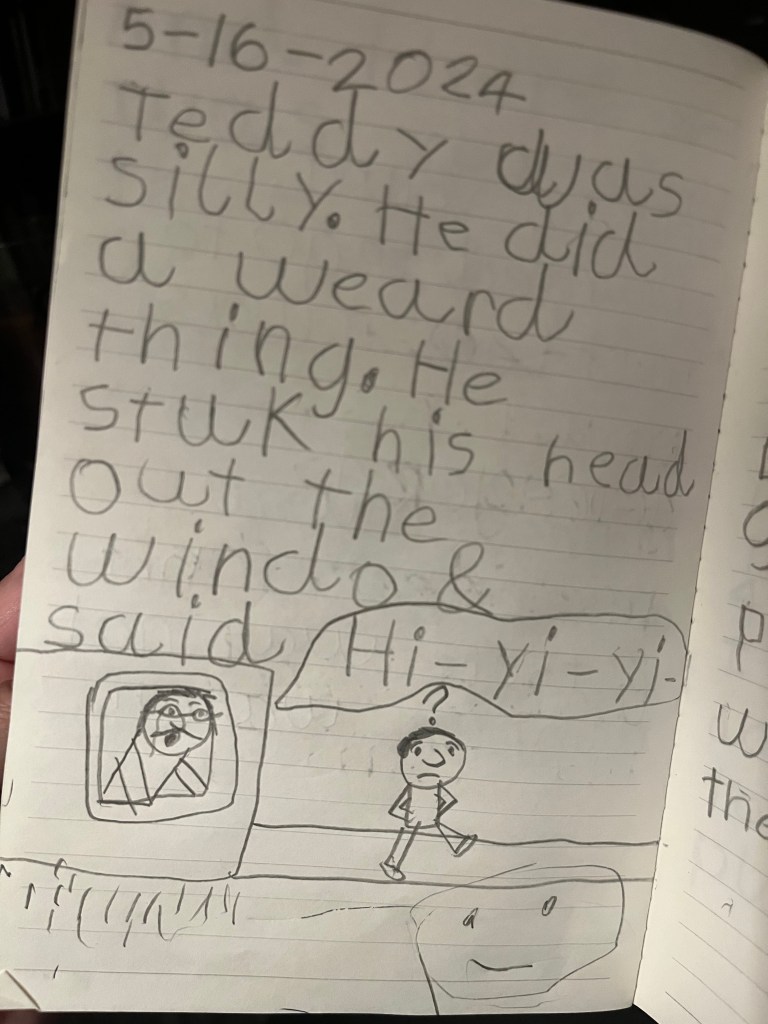 5-16-2024
Teddy was
silly. He did
a weard
thing. He
stuk his head
out the
windo &
said Hi-yi-yi-
?
P
w
the